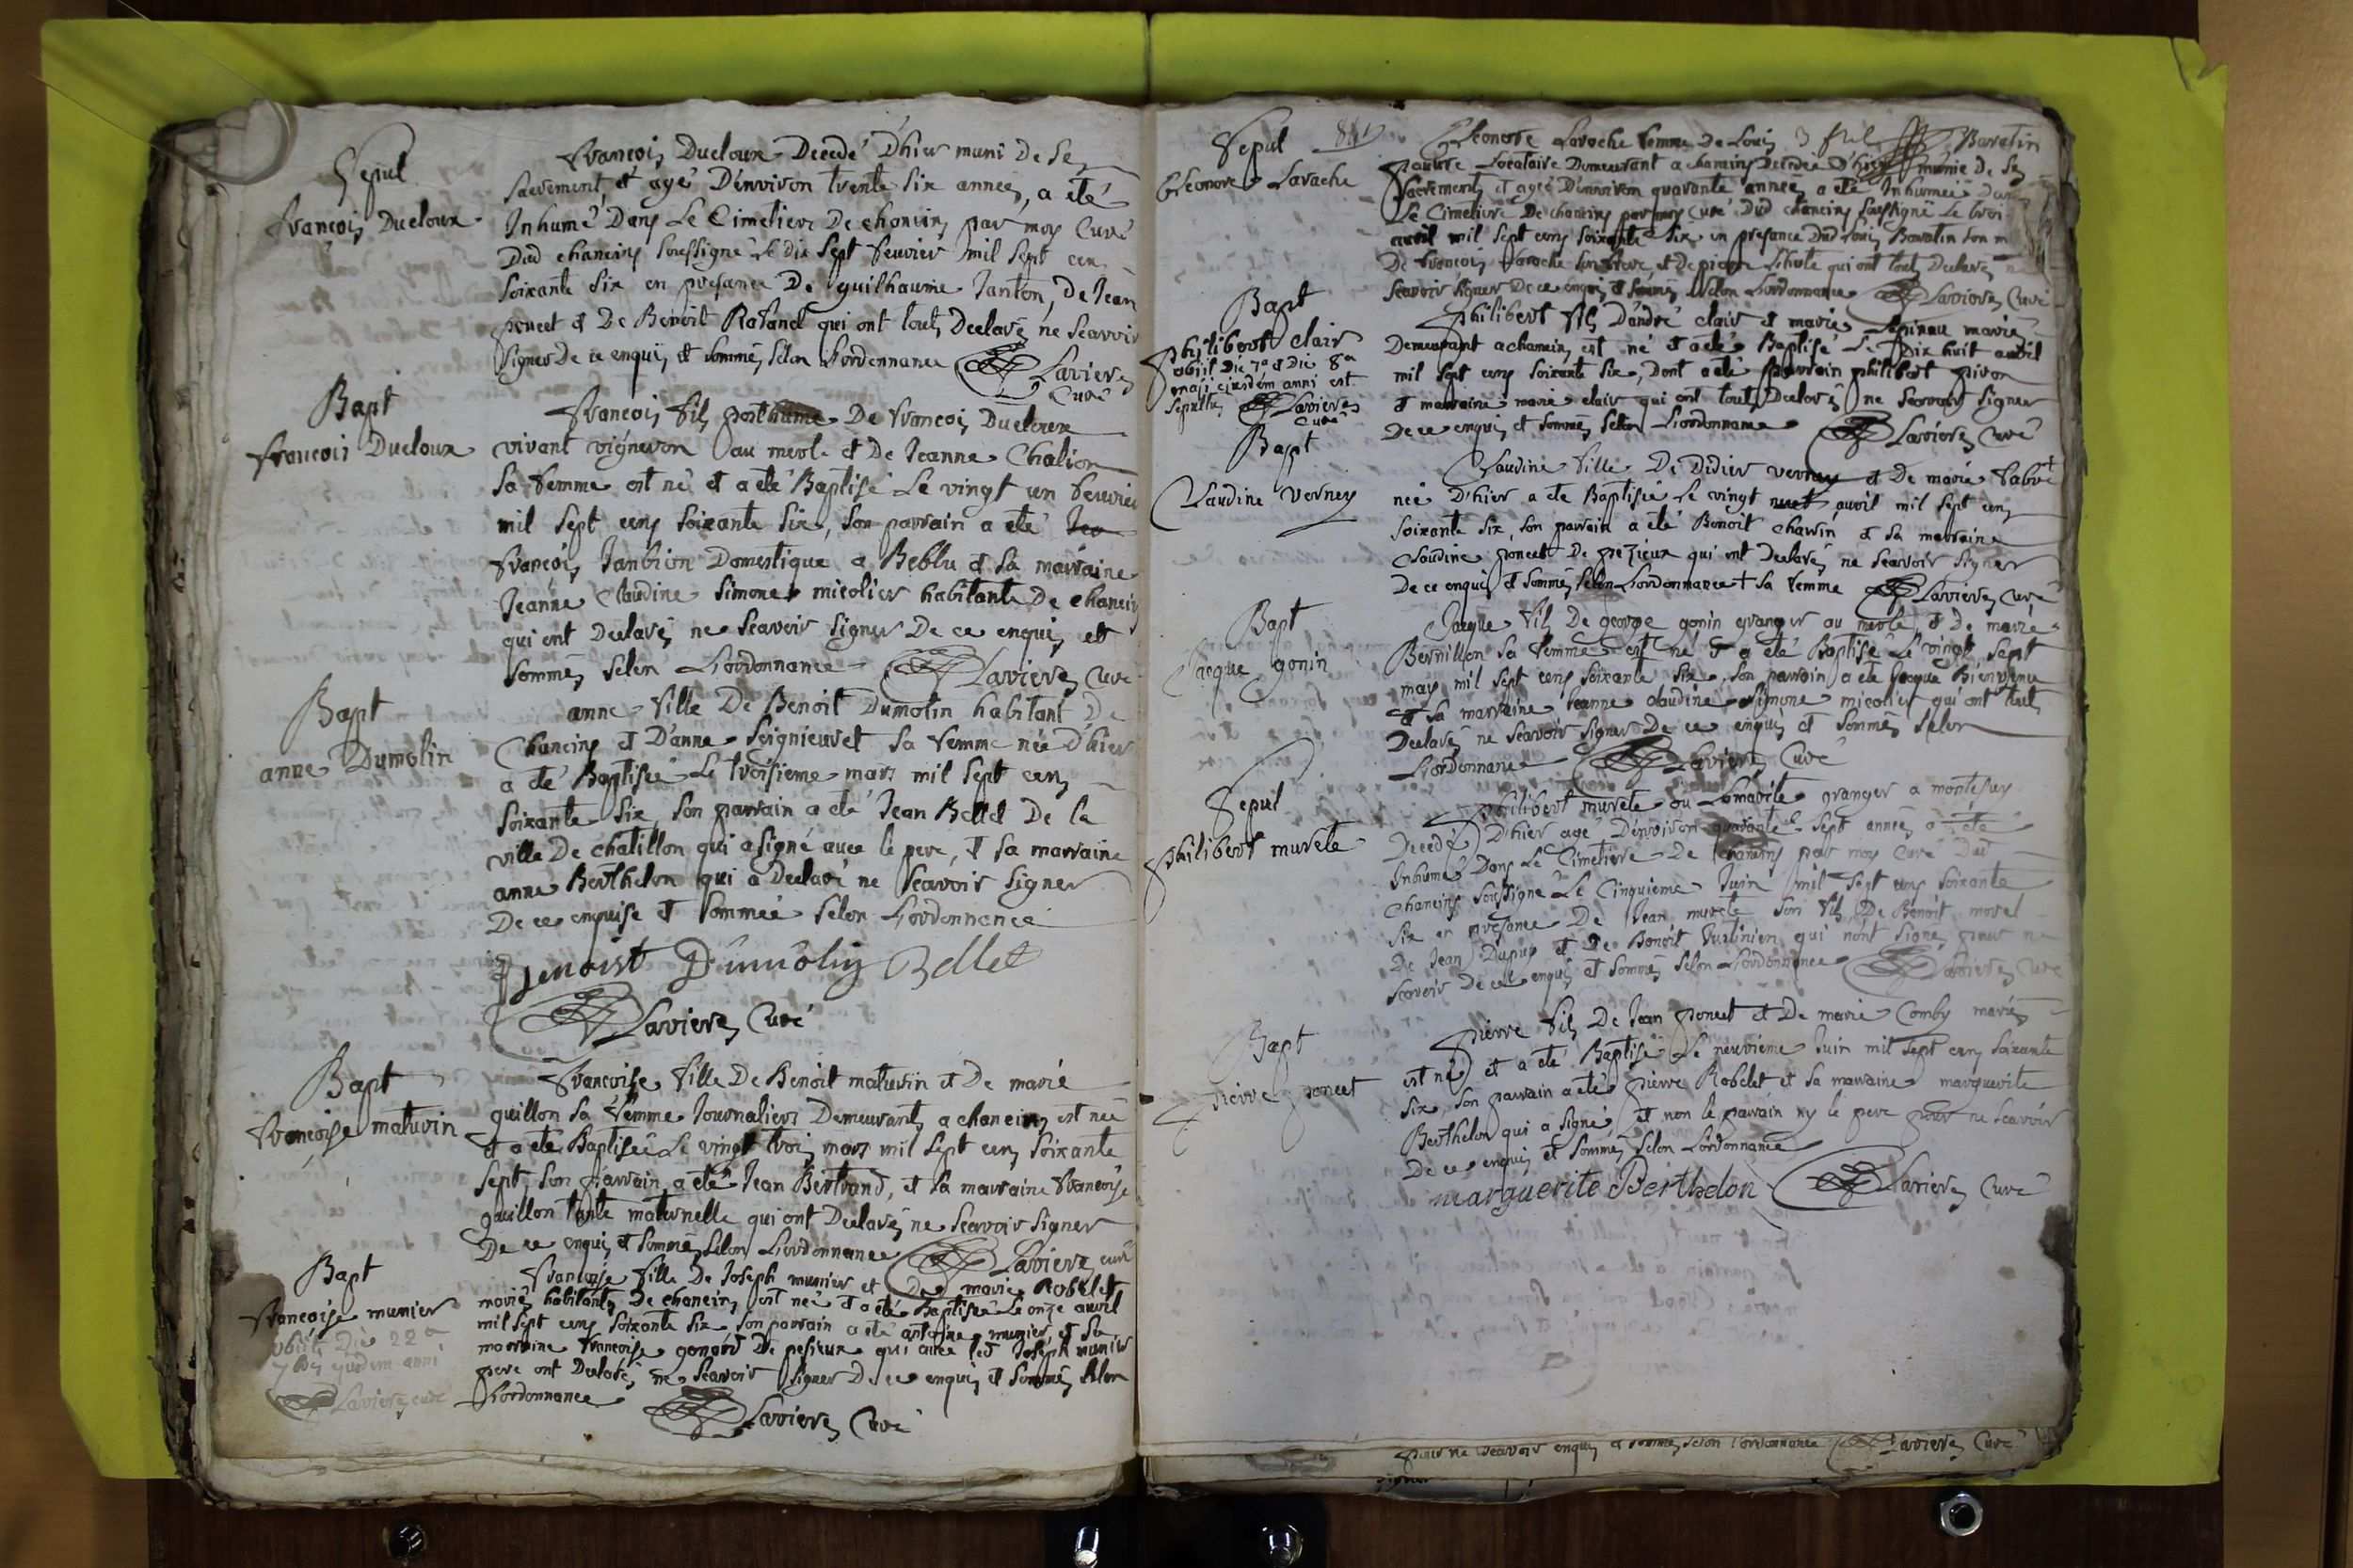 Sepul
François Ducloux
François Ducloux Decedé D'hier muni De Ses
sacrements et agé D'environ trente six années, a été
Inhumé Dans Le Cimetiere De chaneins par moy Curé
Dud chaneins soussigné Le dix sept fevrier mil sept cen
soixante six en presance De guilhaume Janton, de Jean
poncet et De Benoit Rafanel qui ont touts Declarés ne scavoir
signer De ce enquis et sommés selon Lordonnance Lavieres
Curé
Bapt
François Ducloux
François fils posthume De François Ducloux
vivant vigneron au merle et De Jeanne Chalion
sa femme est né et a eté Baptisé Le vingt un fevrier
mil sept cens soixante six, son parrain a eté
François Janbion Domestique a Beblu et sa marraine
Jeanne Claudine Simone micolier habitante De chaneins
qui ont Declarés ne scavoir signer De ce enquis et
sommés selon Lordonnance Lavieres Curé
Bapt
anne Dumolin
anne fille De Benoit Dumolin habitant De
Chaneins et D'anne Seignieuret sa femme née D'hier
a eté Baptisée Le troisieme mars mil sept cens
soixante six, son parrain a eté Jean Bellet De la
ville De chatillon qui a signé avec le pere, et sa marraine
anne Berthelon qui a Declaré ne scavoir signer
De ce enquise et sommée selon Lordonnance
Benoist Dumolin Bellet
Lavieres Curé
Bapt
Françoise maturin
Françoise fille De Benoit maturin et De marie
guillon sa femme Journaliers Demeurants a chaneins est née
et a eté Baptisée Le vingt trois mars mil sept cens soixante
sept, son parrain a eté Jean Bertrand, et sa marraine Françoise
guillon tante maternelle qui ont Declarés ne scavoir signer
De ce enquis et sommés selon Lordonnance Lavieres curé
Bapt
Françoise munier
obiit Die 22a
7bris ejusdem anni
Lavieres curé
Françoise fille De Joseph munier et De marie Robelet
mariés habitants De chaneins est née et a eté Baptisée Le onze avril
mil sept cens soixante six son parrain a eté antoine munier, et sa
marraine Françoise gonard De pesieux qui avec led Joseph munier
pere ont Declarés ne scavoir signer De ce enquis et sommés selon
Lordonnance Lavieres Curé
Sepul
Eleonore Laroche
Eleonore Laroche femme De Louis Barratin
pauvre Locataire Demeurant a chaneins Decedée D'hier munie De Ses
sacrements et agée D'environ quarante années a eté Inhumée dans
Le Cimetiere De chaneins par moy Curé Dud chaneins soussigné Le trois
avril mil sept cens soixante six en presance Dud Louis Barratin son
De François Laroche son frere, et De pierre qui ont touts Declarés
scavoir signer De ce enquis et sommés selon Lordonnance Lavieres Curé
Bapt
Philibert Clair
obiit Die 7a et Die 8a
maji ejusdem anni est
sepultus Lavieres
Curé
Philibert fils D'andré clair et marie mariés
Demeurant a chaneins est né et a eté Baptisé Le Dix huit avril
mil sept cens soixante six, Dont a eté parrain philibert pivon
et marraine marie clair qui ont touts Declarés ne scavoir signer
De ce enquis et sommés selon Lordonnance Lavieres Curé
Bapt
Claudine Verney
Claudine fille De Didier verney et De marie fabre +
née D'hier a eté Baptisée Le vingt avril mil sept cens
soixante six, son parrain a eté Benoit charvin et sa marraine
Claudine poncet De pezieux qui ont declarés ne scavoir signer
De ce enquis et sommés selon Lordonnance + sa femme Lavieres Curé
Bapt
Jacque gonin
Jacque fils De george gonin granger au merle et de marie
Bernillon sa femme est né et a eté Baptisé Le vingt sept
may mil sept cens soixante six, son parrain a eté Jacque Bienvenu
et sa marraine Jeanne claudine Simone micolier qui ont touts
Declarés ne scavoir signer De ce enquis et sommés selon
Lordonnance Lavieres Curé
Sepul
Philibert murete
Philibert murete ou Lamarite granger a montesuy
Decedé D'hier agé D'environ quarante sept années a eté
Inhumé Dans Le Cimetiere De chaneins par moy Curé Dud
chaneins soussigné Le Cinquieme Juin mil sept cens soixante
six en presance De Jean murete son fils, De Benoit morel
De Jean Dupup et De Benoit qui n'ont signé pour ne
scavoir De ce enquis et sommés selon Lordonnance Lavieres Curé
Bapt
pierre poncet
pierre fils De Jean poncet et De marie Comby mariés
est né et a eté Baptisé Le neuvieme Juin mil sept cens soixante
six, son parrain a eté pierre Robelet et sa marraine marguerite
Berthelon qui a signé, et non le parrain ny le pere pour ne scavoir
De ce enquis et sommés selon Lordonnance
marguerite Berthelon Lavieres Curé
pour ne scavoir enquis et sommés selon l'ordonnance Lavieres Curé
signer